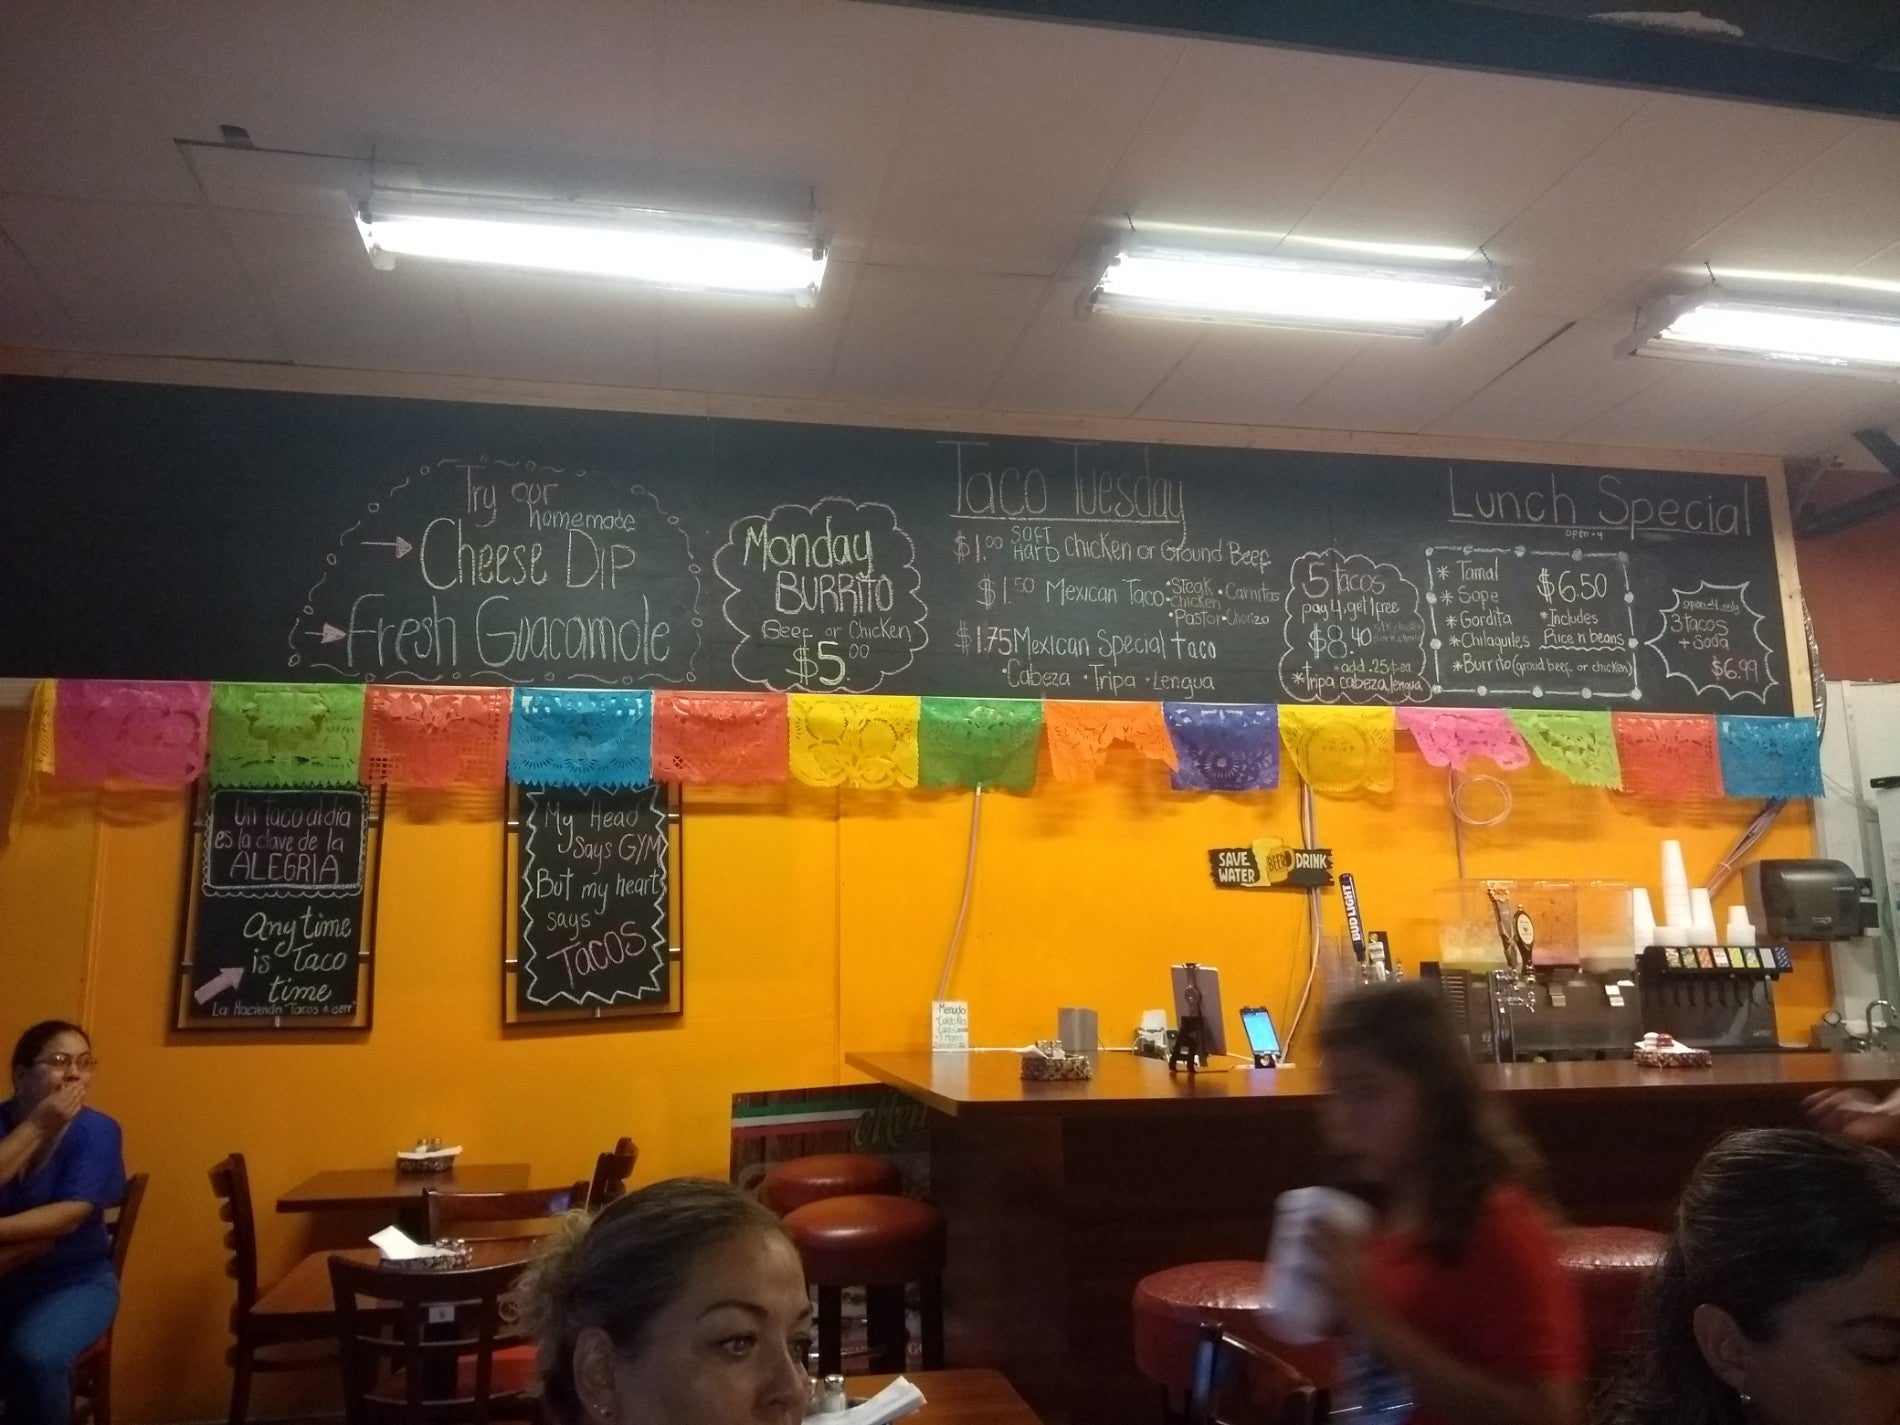 Try our
homemade
Cheese Dip
Fresh Guacamole
Monday
BURRITO
Beef or Chicken
$5.00
Taco Tuesday
$1.00 SOFT HARD Chicken or Ground Beef
$1.50 Mexican Taco • Steak • Carnitas
• Chicken
• Pastor • Chorizo
$1.75 Mexican Special taco
• Cabeza • Tripa • Lengua
5 Tacos
pay 4, get 1 free
$8.40
• add .25¢ ea
* Tripa cabeza, lengua
Lunch Special
open - 4
* Tamal
* Sope
* Gordita
* Chilaquiles
* Burrito (groud beef or chicken)
$6.50
* Includes
Rice n beans
open - 4 only
3 tacos
+ Soda
$6.99
Un taco al día
es la clave de la
ALEGRIA
Any time
is Taco
time
La Hacienda "Tacos & beer"
My Head
Says GYM
But my heart
says
TACOS
SAVE
WATER
BEER
DRINK
BUD LIGHT
Menudo
Caldo Res
8